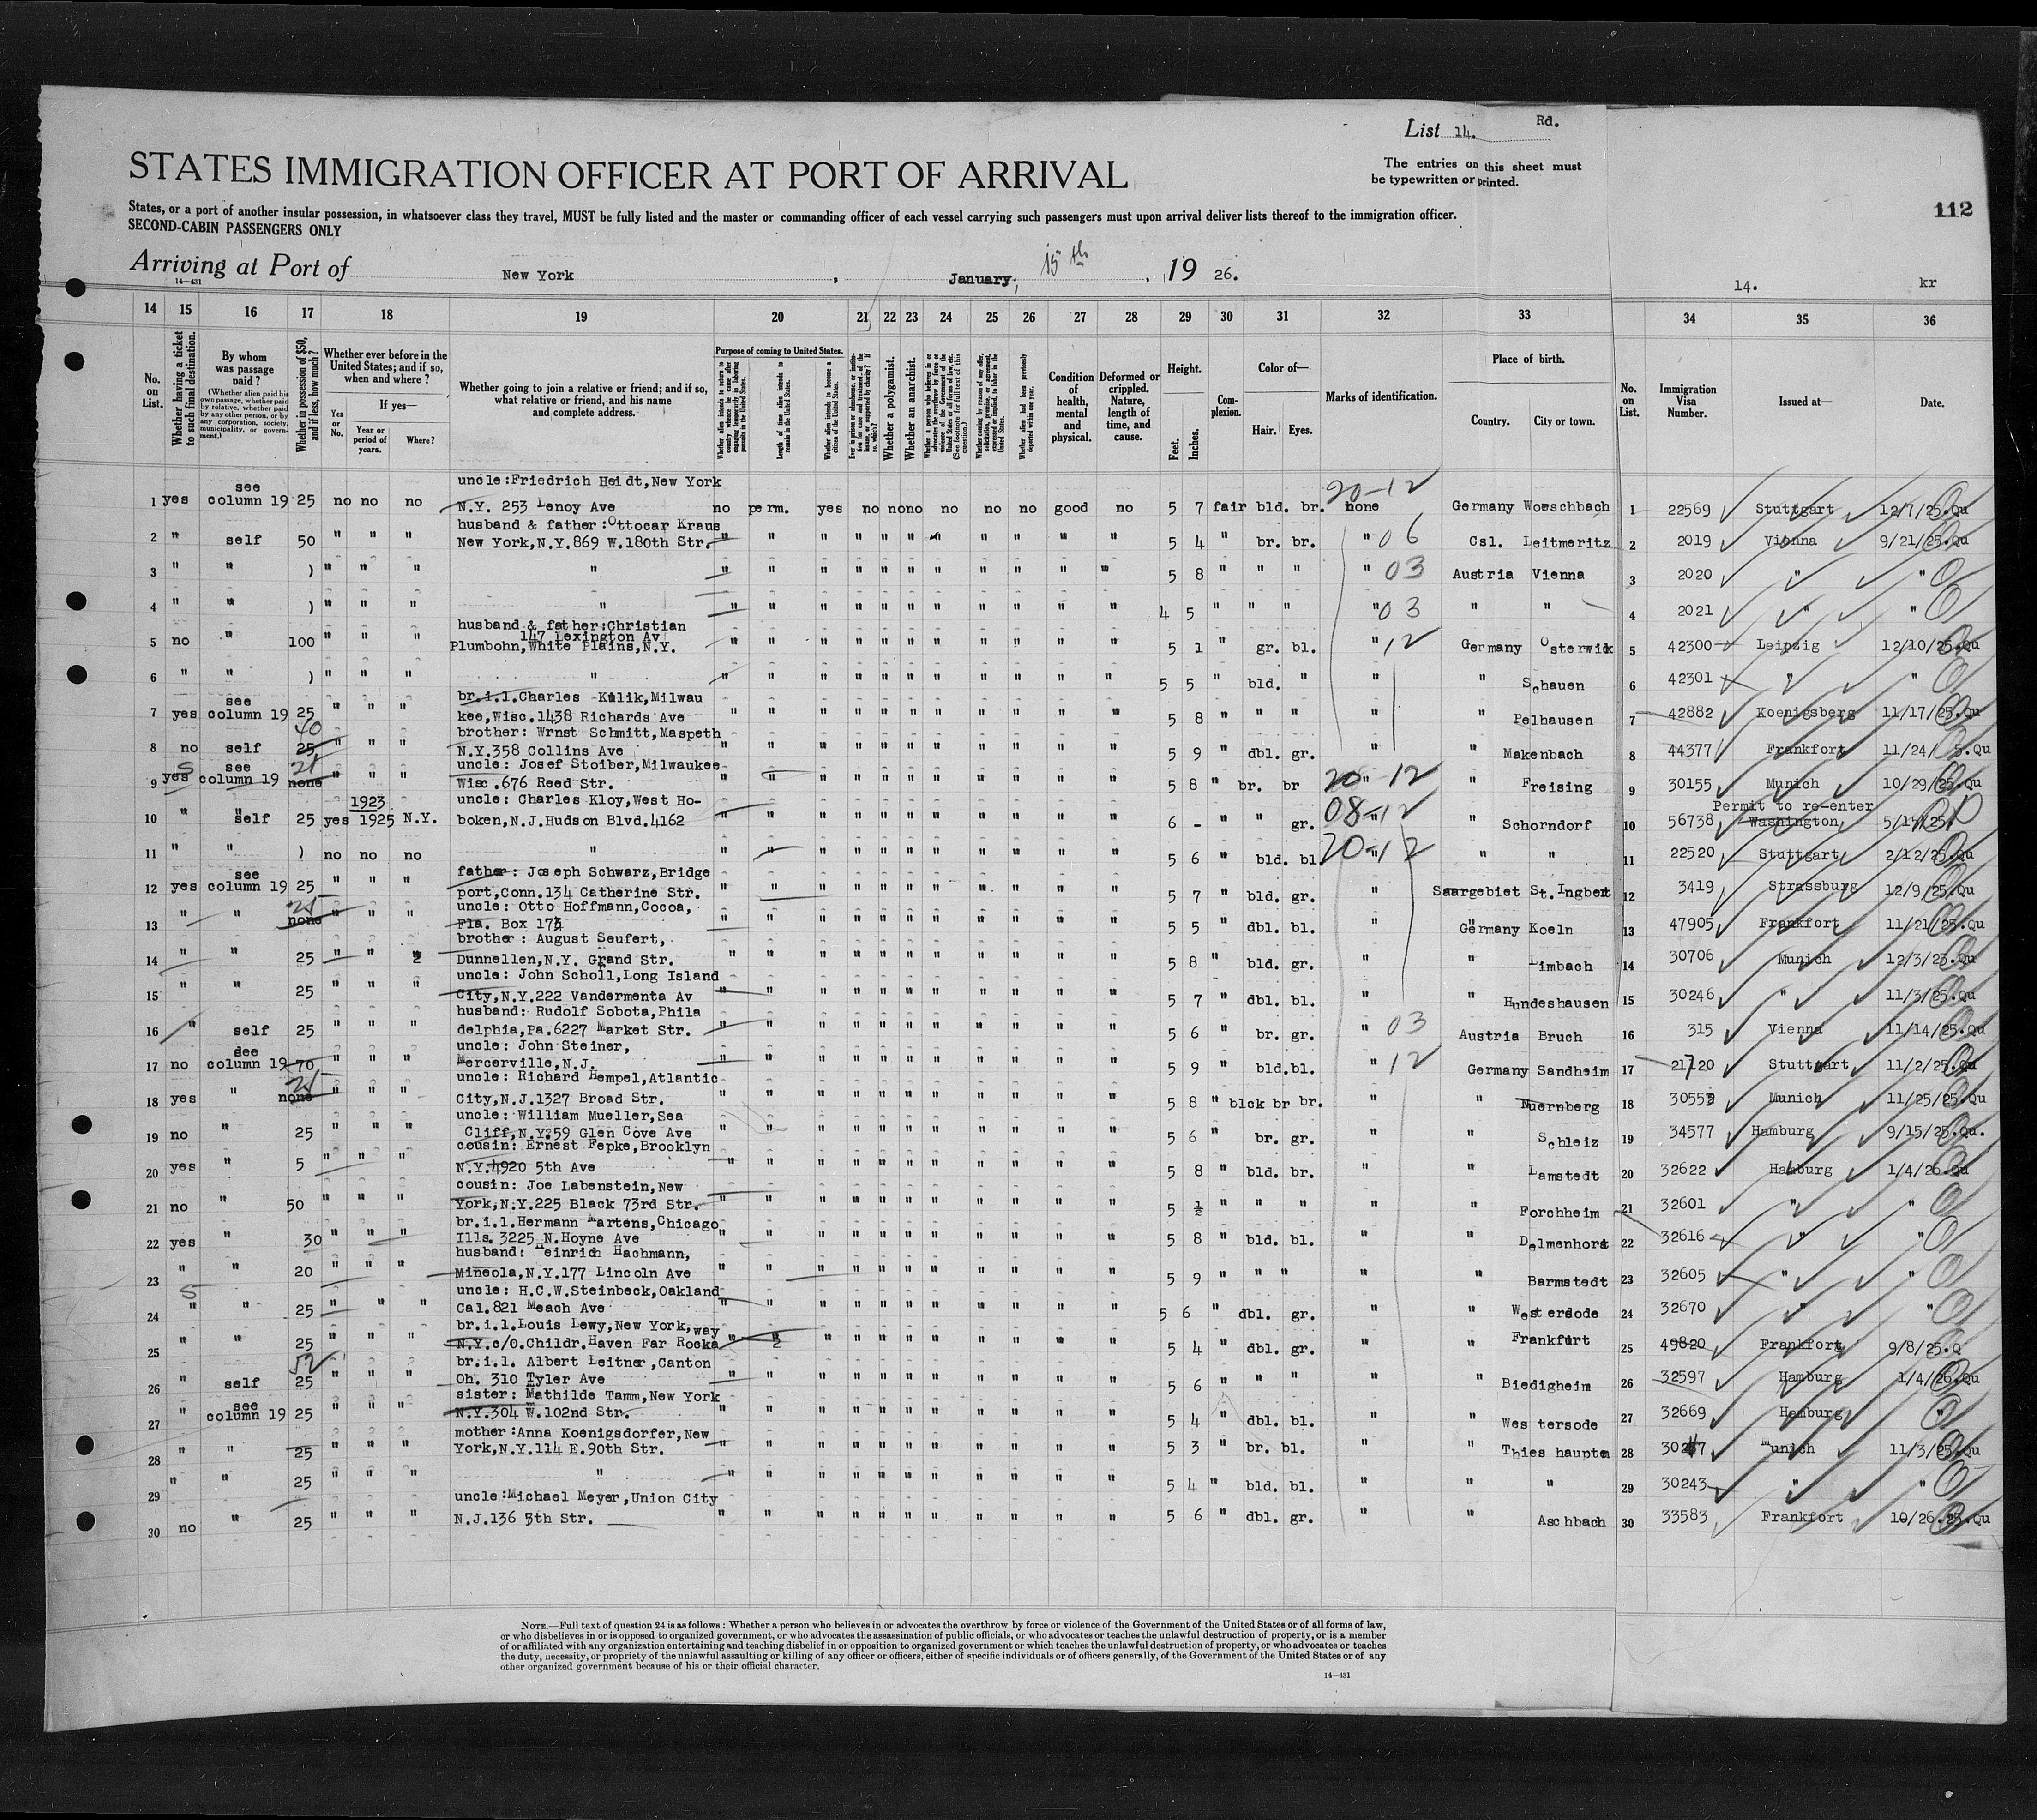 List 14. Rd.
STATES IMMIGRATION OFFICER AT PORT OF ARRIVAL
The entries on this sheet must
be typewritten or printed.
States, or a port of another insular possession, in whatsoever class they travel, MUST be fully listed and the master or commanding officer of each vessel carrying such passengers must upon arrival deliver lists thereof to the immigration officer.
SECOND-CABIN PASSENGERS ONLY
112
Arriving at Port of New York, January, 15th, 19 26.
14—431
14. kr
14 15 16 17 18 19 20 21 22 23 24 25 26 27 28 29 30 31 32 33 34 35 36
No. on List.
Whether having a ticket to such final destination.
By whom was passage paid?
(Whether alien paid his own passage, whether paid by relative, whether paid by any other person, or by any corporation, society, municipality, or government.)
Whether in possession of $50, and if less, how much?
Whether ever before in the United States; and if so, when and where?
If yes—
Yes or No.
Year or period of years.
Where?
Whether going to join a relative or friend; and if so, what relative or friend, and his name and complete address.
Purpose of coming to United States.
Length of time alien intends to remain in the United States.
Whether alien intends to become a citizen of the United States.
Whether a polygamist.
Whether an anarchist.
Condition of health, mental and physical.
Deformed or crippled. Nature, length of time, and cause.
Height.
Feet. Inches.
Complexion.
Color of—
Hair. Eyes.
Marks of identification.
Place of birth.
Country. City or town.
No. on List.
Immigration Visa Number.
Issued at—
Date.
uncle:Friedrich Heidt,New York
1 yes see column 19 25 no no no N.Y. 253 Lenoy Ave no perm. yes no no no no no no good no 5 7 fair bld. br. none 20-12 Germany Woeschbach 1 22569 Stuttgart 12/7/25.Qu
husband & father:Ottocar Kraus
2 " self 50 " " " New York,N.Y.869 W.180th Str. " " " " " " " " " " " 5 4 " br. br. " 06 Csl. Leitmeritz 2 2019 Vienna 9/21/25.Qu
3 " " ) " " " " " " " " " " " " " " " 5 8 " " " " 03 Austria Vienna 3 2020 " "
4 " " ) " " " " " " " " " " " " " " " 4 5 " " " " 03 " " 4 2021 " "
husband & father:Christian
147 Lexington Av
5 no " 100 " " " Plumbohn,White Plains,N.Y. " " " " " " " " " " " 5 1 " gr. bl. " 12 Germany Osterwiek 5 42300 Leipzig 12/10/25.Qu
6 " " ) " " " " " " " " " " " " " " " 5 5 " bld. " " " Schauen 6 42301 " "
br.i.l.Charles Kulik,Milwau
7 yes see column 19 25 " " " kee,Wisc.1438 Richards Ave " " " " " " " " " " " 5 8 " " " " " Pelhausen 7 42882 Koenigsberg 11/17/25.Qu
brother: Wrnst Schmitt,Maspeth
8 no self 25 40 " " " N.Y.358 Collins Ave " " " " " " " " " " " 5 9 " dbl. gr. " " Makenbach 8 44377 Frankfort 11/24/ 5.Qu
uncle: Josef Stoiber,Milwaukee
9 yes see column 19 none " " " Wisc.676 Reed Str. " " " " " " " " " " " 5 8 " br. br 20-12 " Freising 9 30155 Munich 10/29/25.Qu
uncle: Charles Kloy,West Ho-
10 " self 25 yes 1923 1925 N.Y. boken,N.J.Hudson Blvd.4162 " " " " " " " " " " " 6 - " " gr. 08-12 " Schorndorf 10 56738 Permit to re-enter Washington 5/15/25.
11 " " ) no no no " " " " " " " " " " " " 5 6 " bld. bl. 20-12 " " 11 22520 Stuttgart 2/12/25.Qu
father: Joseph Schwarz,Bridge
12 yes see column 19 25 " " " port,Conn.134 Catherine Str. " " " " " " " " " " " 5 7 " bld. gr. " Saargebiet St.Ingbert 12 3419 Strassburg 12/9/25.Qu
uncle: Otto Hoffmann,Cocoa,
13 " " none 25 " " " Fla. Box 174 " " " " " " " " " " " 5 5 " dbl. bl. " Germany Koeln 13 47905 Frankfort 11/21/25.Qu
brother: August Seufert,
14 " " 25 " " " Dunnellen,N.Y. Grand Str. " " " " " " " " " " " 5 8 " bld. gr. " " Limbach 14 30706 Munich 12/3/25.Qu
uncle: John Scholl,Long Island
15 " " 25 " " " City,N.Y.222 Vandermenta Av " " " " " " " " " " " 5 7 " dbl. bl. " " Hundeshausen 15 30246 " 11/3/25.Qu
husband: Rudolf Sobota,Phila
16 " self 25 " " " delphia,Pa.6227 Market Str. " " " " " " " " " " " 5 6 " br. gr. " 03 Austria Bruch 16 315 Vienna 11/14/25.Qu
uncle: John Steiner,
17 no see column 19 70 " " " Mercerville,N.J. " " " " " " " " " " " 5 9 " bld.bl. " 12 Germany Sandheim 17 21720 Stuttgart 11/2/25.Qu
uncle: Richard Hempel,Atlantic
18 yes " none 25 " " " City,N.J.1327 Broad Str. " " " " " " " " " " " 5 8 " blck br br. " " Nuernberg 18 30553 Munich 11/25/25.Qu
uncle: William Mueller,Sea
19 no " 25 " " " Cliff,N.Y.59 Glen Cove Ave " " " " " " " " " " " 5 6 " br. gr. " " Schleiz 19 34577 Hamburg 9/15/25.Qu.
cousin: Ernest Fepke,Brooklyn
20 yes " 5 " " " N.Y.4920 5th Ave " " " " " " " " " " " 5 8 " bld. br. " " Lamstedt 20 32622 Hamburg 1/4/26.Qu
cousin: Joe Labenstein,New
21 no " 50 " " " York,N.Y.225 Black 73rd Str. " " " " " " " " " " " 5 ½ " " " " " Forchheim 21 32601 " "
br.i.l.Hermann Martens,Chicago
22 yes " 30 " " " Ills. 3225 N.Hoyne Ave " " " " " " " " " " " 5 8 " bld. bl. " " Delmenhorst 22 32616 " "
husband: Heinrich Hachmann,
23 " " 20 " " " Mineola,N.Y.177 Lincoln Ave " " " " " " " " " " " 5 9 " " " " " Barmstedt 23 32605 " "
uncle: H.C.W.Steinbeck,Oakland
24 " " 25 " " " Cal.821 Meach Ave " " " " " " " " " " " 5 6 " dbl. gr. " " Westerdode 24 32670 " "
br.i.l.Louis Lewy,New York,way
25 " " 25 " " " N.Y.c/o.Childr.Haven Far Rocka " " " " " " " " " " " 5 4 " dbl. gr. " " Frankfurt 25 49820 Frankfort 9/8/25.Q
br.i.l. Albert Leitner,Canton
26 " self 25 52 " " " Oh. 310 Tyler Ave " " " " " " " " " " " 5 6 " " " " " Biedigheim 26 32597 Hamburg 1/4/26.Qu
sister: Mathilde Tamm,New York
27 " see column 19 25 " " " N.Y.304 W.102nd Str. " " " " " " " " " " " 5 4 " dbl. bl. " " Westersode 27 32669 Hamburg "
mother:Anna Koenigsdorfer,New
28 " " 25 " " " York,N.Y.114 E.90th Str. " " " " " " " " " " " 5 3 " br. bl. " " Thieshaupten 28 Munich 11/3/25.Qu
29 " " 25 " " " " " " " " " " " " " " " 5 4 " bld. bl. " " " 29 30243 " "
uncle:Michael Meyer,Union City
30 no " 25 " " " N.J.136 5th Str. " " " " " " " " " " " 5 6 " dbl. gr. " " Aschbach 30 33583 Frankfort 10/26.25.Qu
NOTE.—Full text of question 24 is as follows: Whether a person who believes in or advocates the overthrow by force or violence of the Government of the United States or of all forms of law,
or who disbelieves in or is opposed to organized government, or who advocates the assassination of public officials, or who advocates or teaches the unlawful destruction of property, or is a member
of or affiliated with any organization entertaining and teaching disbelief in or opposition to organized government or which teaches the unlawful destruction of property, or who advocates or teaches
the duty, necessity, or propriety of the unlawful assaulting or killing of any officer or officers, either of specific individuals or of officers generally, of the Government of the United States or of any
other organized government because of his or their official character.
14—431